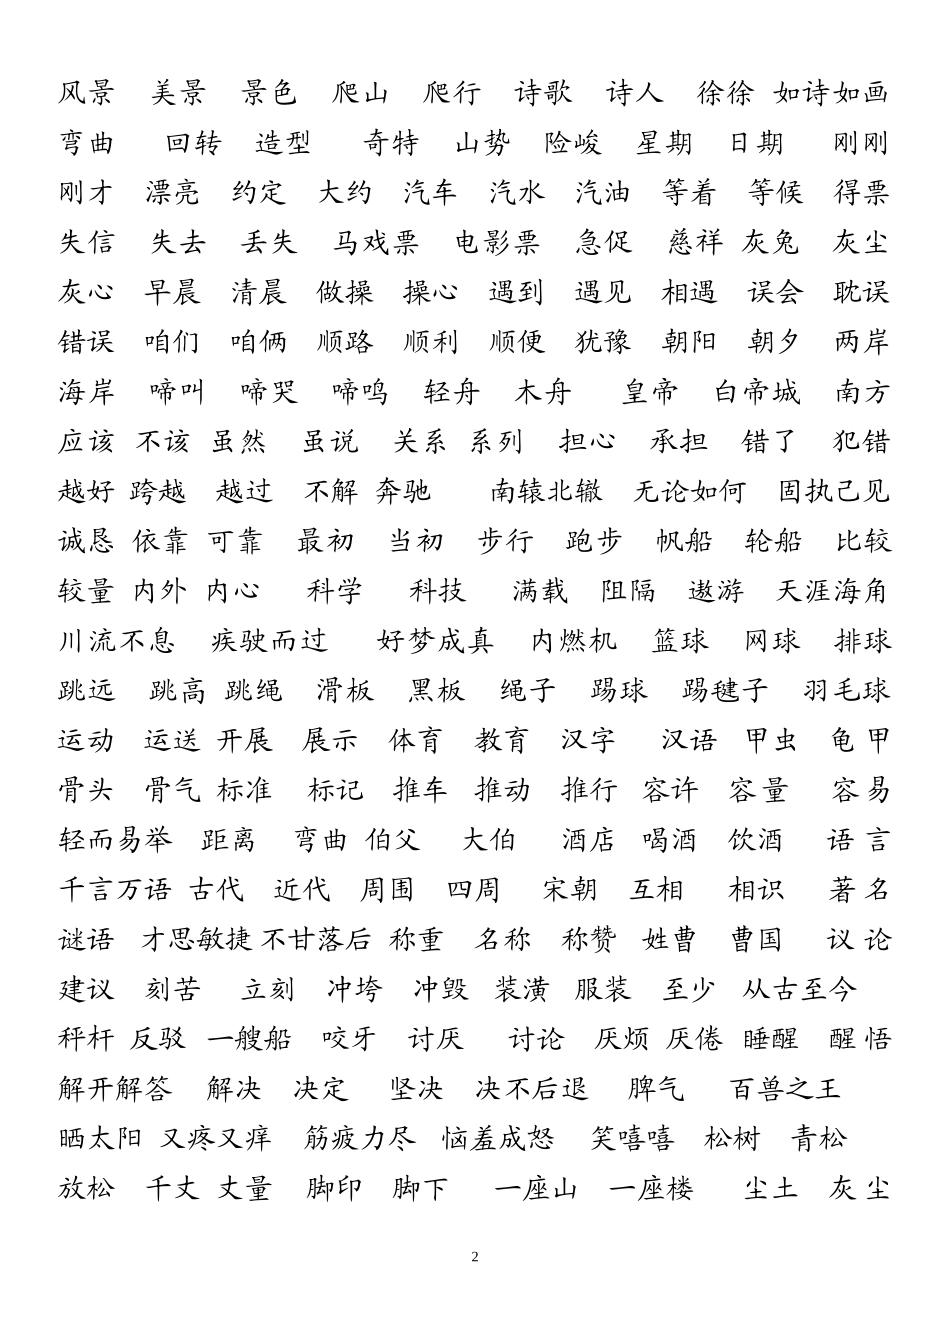 风景 美景 景色 爬山 爬行 诗歌 诗人 徐徐 如诗如画
弯曲 回转 造型 奇特 山势 险峻 星期 日期 刚刚
刚才 漂亮 约定 大约 汽车 汽水 汽油 等着 等候 得票
失信 失去 丢失 马戏票 电影票 急促 慈祥 灰兔 灰尘
灰心 早晨 清晨 做操 操心 遇到 遇见 相遇 误会 耽误
错误 咱们 咱俩 顺路 顺利 顺便 犹豫 朝阳 朝夕 两岸
海岸 啼叫 啼哭 啼鸣 轻舟 木舟 皇帝 白帝城 南方
应该 不该 虽然 虽说 关系 系列 担心 承担 错了 犯错
越好 跨越 越过 不解 奔驰 南辕北辙 无论如何 固执己见
诚恳 依靠 可靠 最初 当初 步行 跑步 帆船 轮船 比较
较量 内外 内心 科学 科技 满载 阻隔 遨游 天涯海角
川流不息 疾驶而过 好梦成真 内燃机 篮球 网球 排球
跳远 跳高 跳绳 滑板 黑板 绳子 踢球 踢毽子 羽毛球
运动 运送 开展 展示 体育 教育 汉字 汉语 甲虫 龟甲
骨头 骨气 标准 标记 推车 推动 推行 容许 容量 容易
轻而易举 距离 弯曲 伯父 大伯 酒店 喝酒 饮酒 语言
千言万语 古代 近代 周围 四周 宋朝 互相 相识 著名
谜语 才思敏捷 不甘落后 称重 名称 称赞 姓曹 曹国 议论
建议 刻苦 立刻 冲垮 冲毁 装潢 服装 至少 从古至今
秤杆 反驳 一艘船 咬牙 讨厌 讨论 厌烦 厌倦 睡醒 醒悟
解开解答 解决 决定 坚决 决不后退 脾气 百兽之王
晒太阳 又疼又痒 筋疲力尽 恼羞成怒 笑嘻嘻 松树 青松
放松 千丈 丈量 脚印 脚下 一座山 一座楼 尘土 灰尘
2